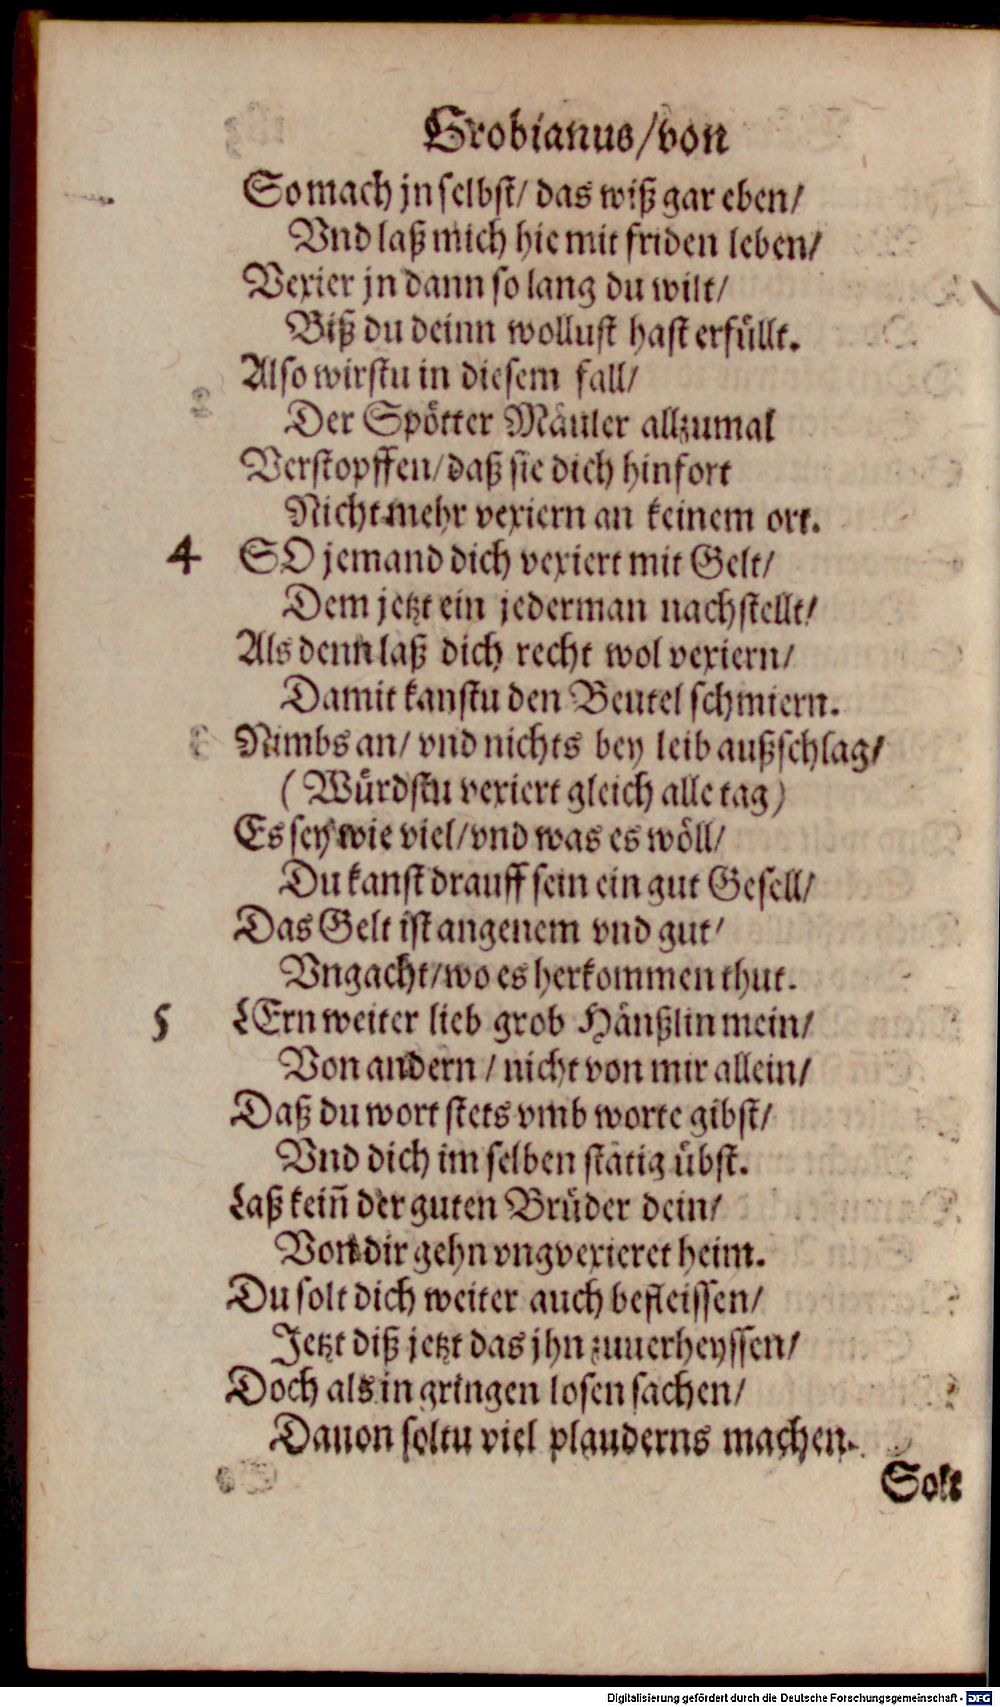 Grobianus/von
So mach jn selbst/ das wiß gar eben/
Vnd laß mich hie mit friden leben/
Vexier jn dann so lang du wilt/
Biß du deinn wollust hast erfüllt.
Also wirstu in diesem fall/
Der Spötter Mäuler allzumal
Verstopffen/daß sie dich hinfort
Nicht mehr vexiern an keinem ort.
4 SO jemand dich vexiert mit Gelt/
Dem jetzt ein jederman nachstellt/
Als denn laß dich recht wol vexiern/
Damit kanstu den Beutel schmiern.
Nimbs an/ vnd nichts bey leib außschlag/
(Würdstu vexiert gleich alle tag)
Es sey wie viel/vnd was es wöll/
Du kanst drauff sein ein gut Gesell/
Das Gelt ist angenem vnd gut/
Vngacht/wo es herkommen thut.
5 LErn weiter lieb grob Hänßlin mein/
Von andern/nicht von mir allein/
Daß du wort stets vmb worte gibst/
Vnd dich im selben stätig übst.
Laß keiñ der guten Brüder dein/
Von dir gehn vngvexieret heim.
Du solt dich weiter auch befleissen/
Jetzt diß jetzt das jhn zuuerheyssen/
Doch als in gringen losen sachen/
Dauon soltu viel plauderns machen.
Solt
Digitalisierung gefördert durch die Deutsche Forschungsgemeinschaft - DFG